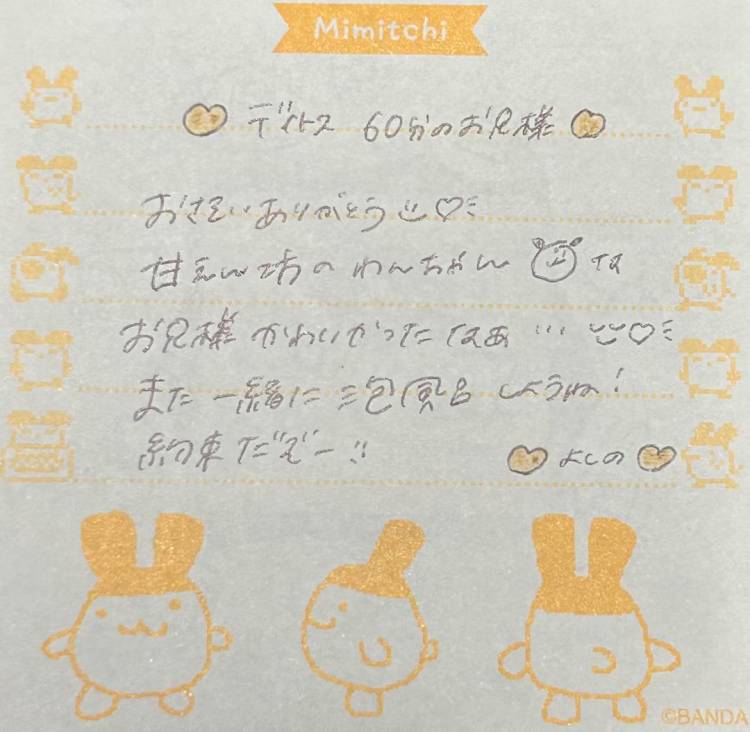 Mimitchi
デイトス 60分のお兄様
おさそいありがとう
甘えん坊のわんちゃん な
お兄様 かわいかったなぁ…
また一緒に 泡風呂しようね!
約束だぞー!!
よしの
©BANDA